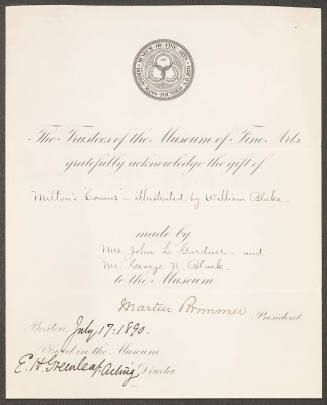 MUSEUM OF FINE ARTS
BOSTON MASS
The Trustees of the Museum of Fine Arts
gratefully acknowledge the gift of
Milton's "Comus" - illustrated by William Blake.
made by
Mrs. John L. Gardner - and
Mr. George N. Black.
to the Museum
Martin Brimmer President
Boston, July 17: 1890.
in the Museum
E. H. Greenleaf. Acting Director